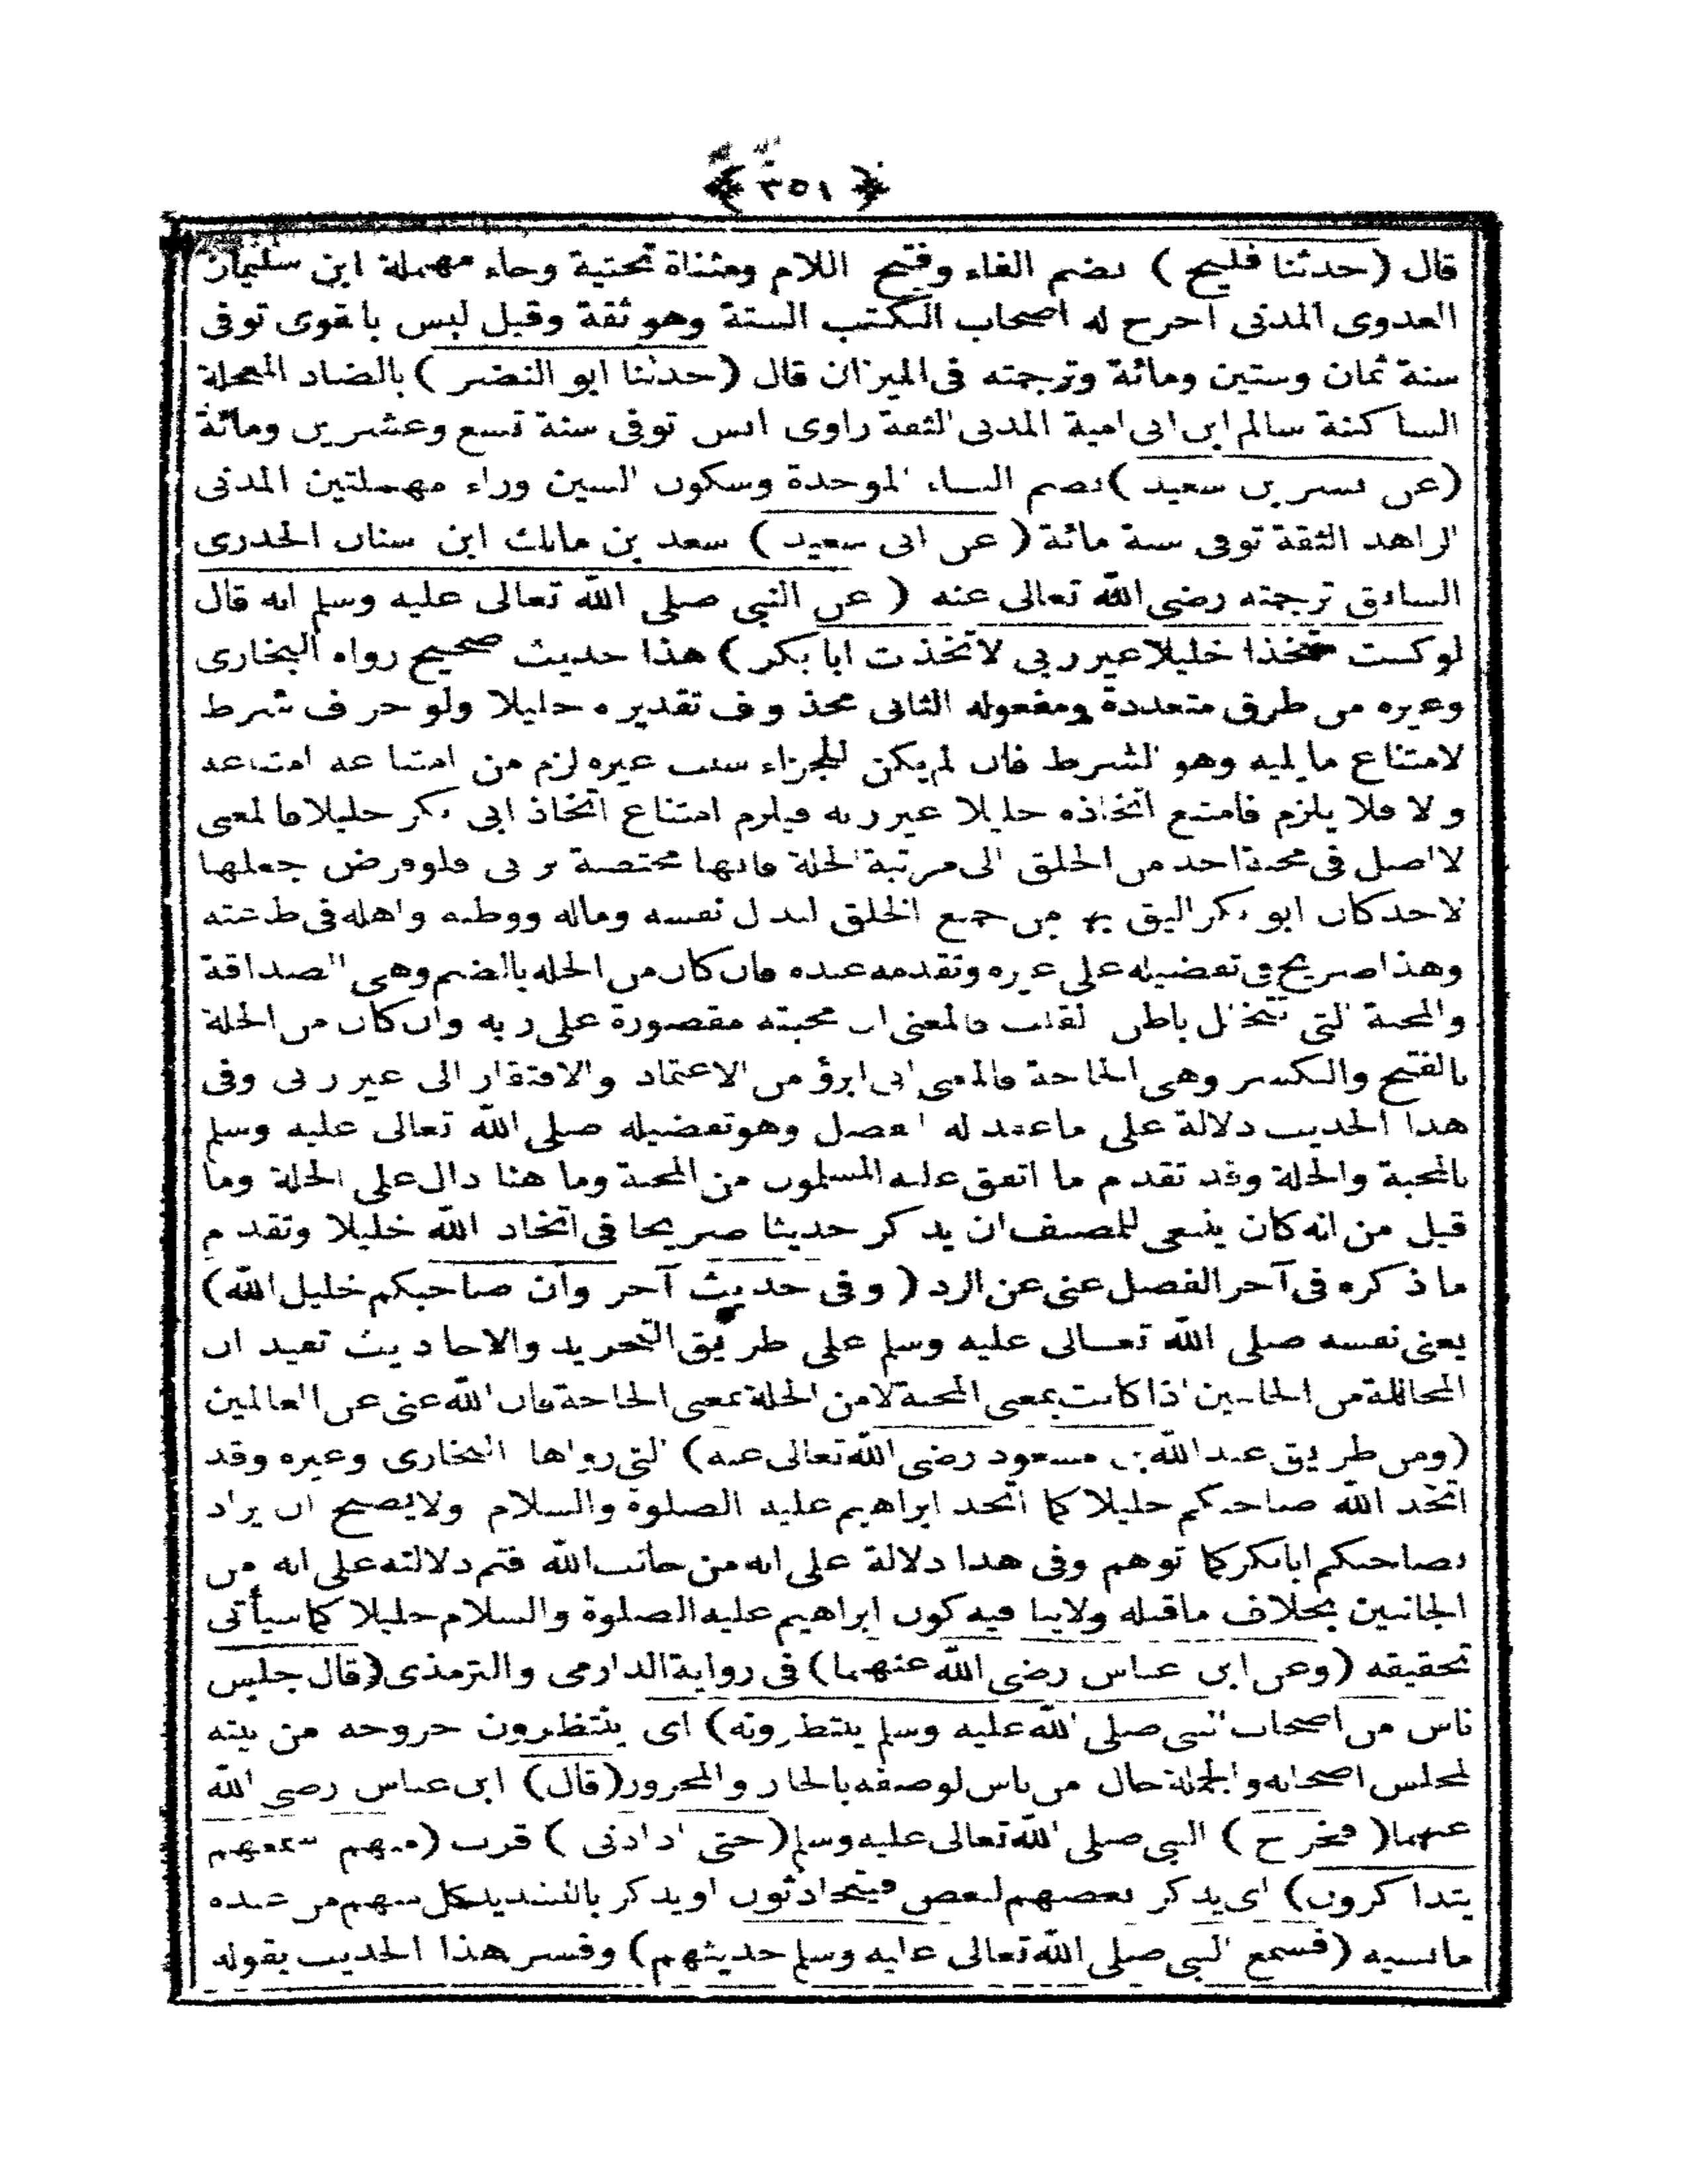 ﴿ ٣٥١ ﴾
قال (حدثنا فليح) بضم الفاء وفتح اللام ومثناة تحتية وحاء مهملة ابن سليمان
العدوى المدنى اخرج له اصحاب الكتب الستة وهو ثقة وقيل ليس بالقوى توفى
سنة ثمان وستين ومائة وترجمته فى الميزان قال (حدثنا ابو النضر) بالضاد المعجمة
الساكنة سالم ابن ابى امية المدنى الثقة راوى انس توفى سنة تسع وعشرين ومائة
(عن بسر بن سعيد) بضم الباء الموحدة وسكون السين وراء مهملتين المدنى
الزاهد الثقة توفى سنة مائة (عن ابى سعيد) سعد بن مالك ابن سنان الخدرى
السابق ترجمته رضى الله تعالى عنه (عن النبى صلى الله تعالى عليه وسلم انه قال
لوكنت متخذا خليلا غير ربى لاتخذت ابا بكر) هذا حديث صحيح رواه البخارى
وغيره من طرق متعددة ومفعوله الثانى محذوف تقديره خليلا ولو حرف شرط
لامتناع مايليه وهو الشرط فان لم يكن للجزاء سبب غيره لزم من امتناعه امتناعه
والا فلا يلزم فامتنع اتخاذه خليلا غير ربه فيلزم امتناع اتخاذ ابى بكر خليلا فالمعنى
لااصل فى محبة احد من الخلق الى مرتبة الخلة فانها مختصة بربى فلو فرض جعلها
لاحد كان ابو بكر اليق بها من جميع الخلق لبذل نفسه وماله ووطنه واهله فى طاعته
وهذا صريح فى تفضيله على غيره وتقدمه عنده فان كان من الخلة بالضم وهى الصداقة
والمحبة التى تتخلل باطن القلب فالمعنى ان محبته مقصورة على ربه وان كان من الخلة
بالفتح والكسر وهى الحاجة فالمعنى انى ابرؤ من الاعتماد والافتقار الى غير ربى وفى
هذا الحديث دلالة على ماعقد له الفصل وهو تفضيله صلى الله تعالى عليه وسلم
بالمحبة والخلة وقد تقدم ما اتفق عليه المسلمون من المحبة وما هنا دال على الخلة وما
قيل من انه كان ينبغى للمصنف ان يذكر حديثا صريحا فى اتخاذ الله خليلا وتقدم
ماذكره فى آخر الفصل غنى عن الرد (وفى حديث آخر وان صاحبكم خليل الله)
يعنى نفسه صلى الله تعالى عليه وسلم على طريق التجريد والاحاديث تفيد ان
المخاللة من الجانبين اذا كانت بمعنى المحبة لامن الخلة بمعنى الحاجة فان الله غنى عن العالمين
(ومن طريق عبد الله بن مسعود رضى الله تعالى عنه) التى رواها البخارى وغيره وقد
اتخذ الله صاحبكم خليلا كما اتخذ ابراهيم عليه الصلوة والسلام ولايصح ان يراد
بصاحبكم ابابكر كما توهم وفى هذا دلالة على انه من جانب الله فتم دلالته على انه من
الجانبين بخلاف ماقبله ولاينافيه كون ابراهيم عليه الصلوة والسلام خليلا كما سيأتى
تحقيقه (وعن ابن عباس رضى الله عنهما) فى رواية الدارمى والترمذى (قال جلس
ناس من اصحاب النبى صلى الله عليه وسلم ينتظرونه) اى ينتظرون خروجه من بيته
لمجلس اصحابه والجملة حال من ناس لوصفه بالجار والمجرور (قال) ابن عباس رضى الله
عنهما (فخرج) النبى صلى الله تعالى عليه وسلم (حتى اذا دنى) قرب (منهم سمعهم
يتذاكرون) اى يذكر بعضهم لبعض فيتحادثون او يذكر بالتشديد كل منهم من عنده
مانسيه (فسمع النبى صلى الله تعالى عليه وسلم حديثهم) وفسر هذا الحديث بقوله